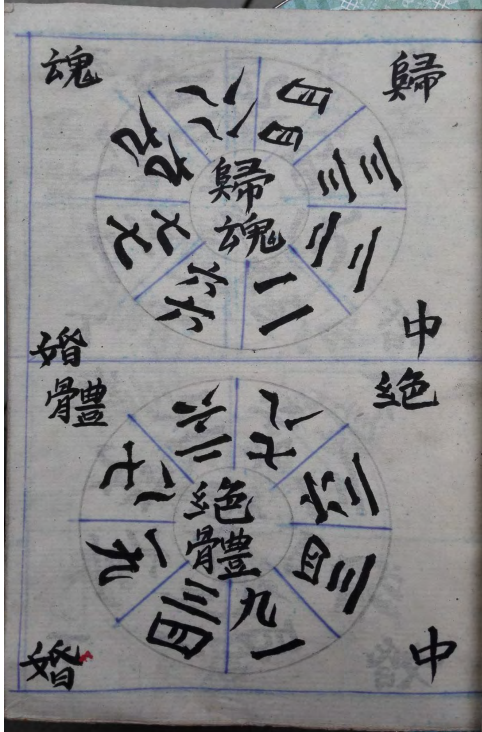 歸魂
四四
三三
二二
一一
六六
七七
九九
八八
歸
魂
中婚
絶體
八七
二六
三四
一九
四三
九一
七八
六二
絶
體
中婚